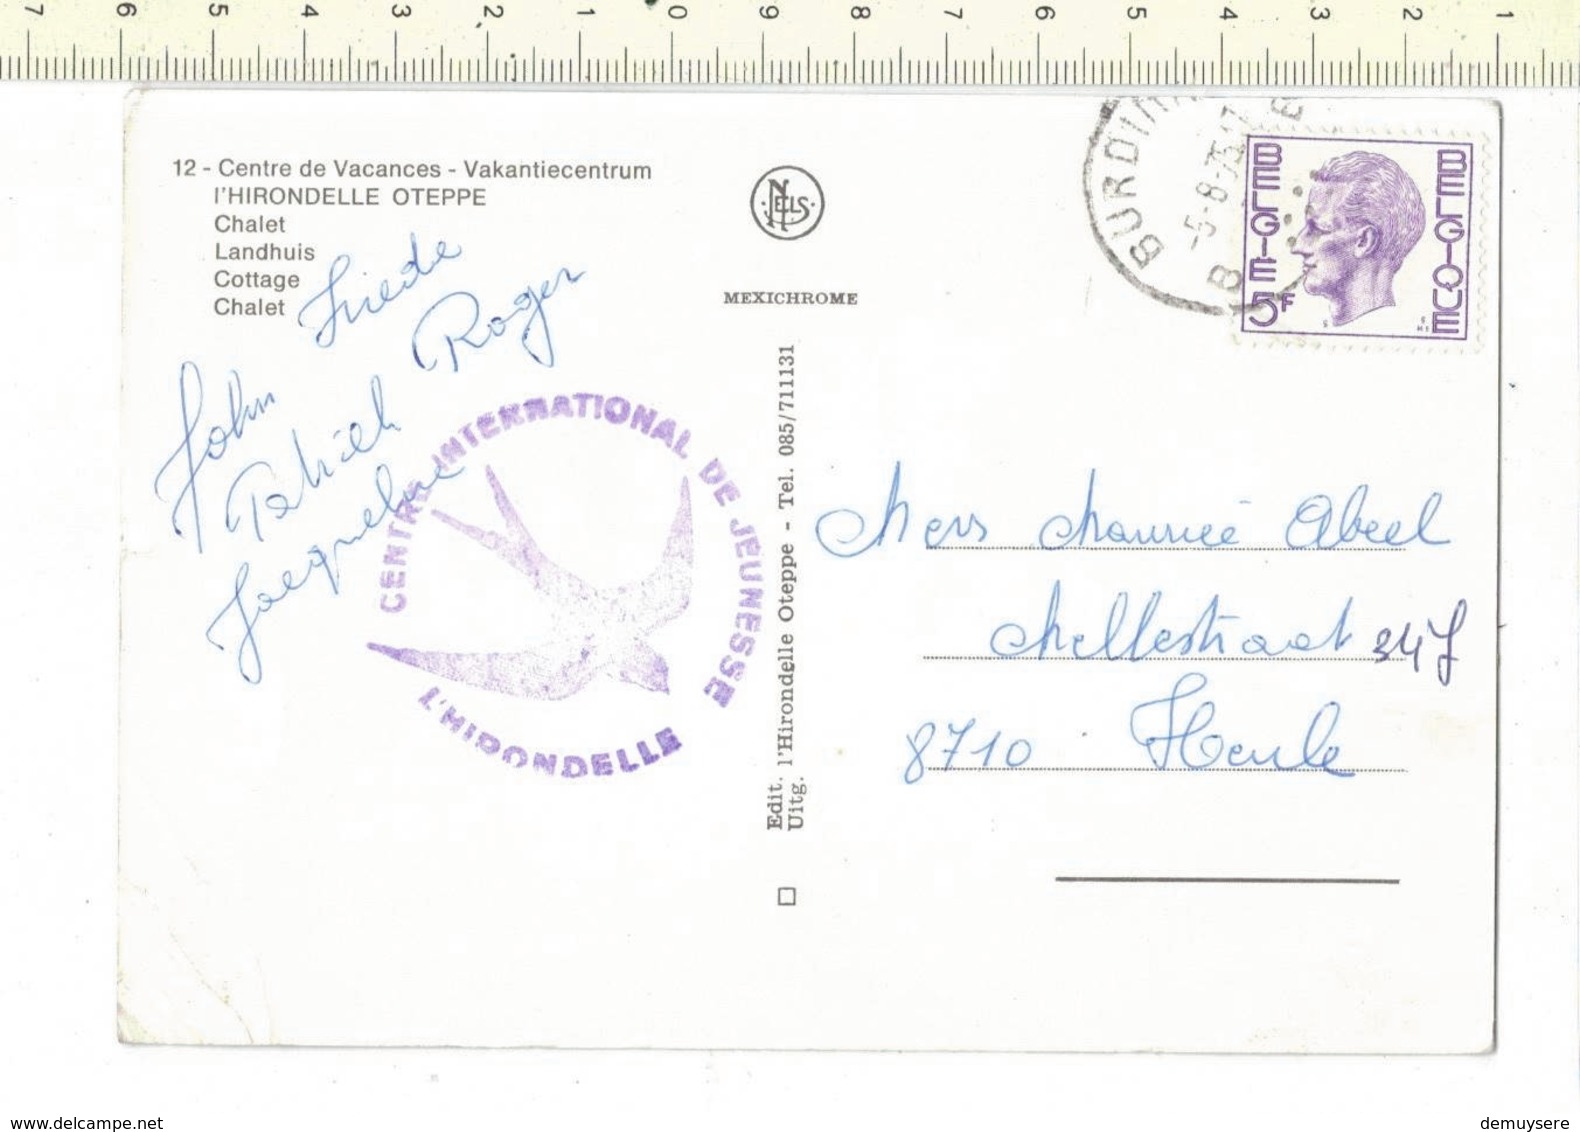 7 6 5 4 3 2 1 0 9 8 7 6 5 4 3 2 1
12 - Centre de Vacances - Vakantiecentrum
l'HIRONDELLE OTEPPE
Chalet
Landhuis
Cottage
Chalet
Friede
Roger
John
Patrick
Jacqueline
CENTRE INTERNATIONAL DE JEUNESSE
L'HIRONDELLE
NELS
MEXICHROME
Edit. l'Hirondelle Oteppe - Tel. 085/711131
Uitg.
-5-8-75
B
BELGIË 5F
BELGIQUE
Mers Maurice Abeel
Mellestraat 347
8710 Heule
www.delcampe.net
demuysere